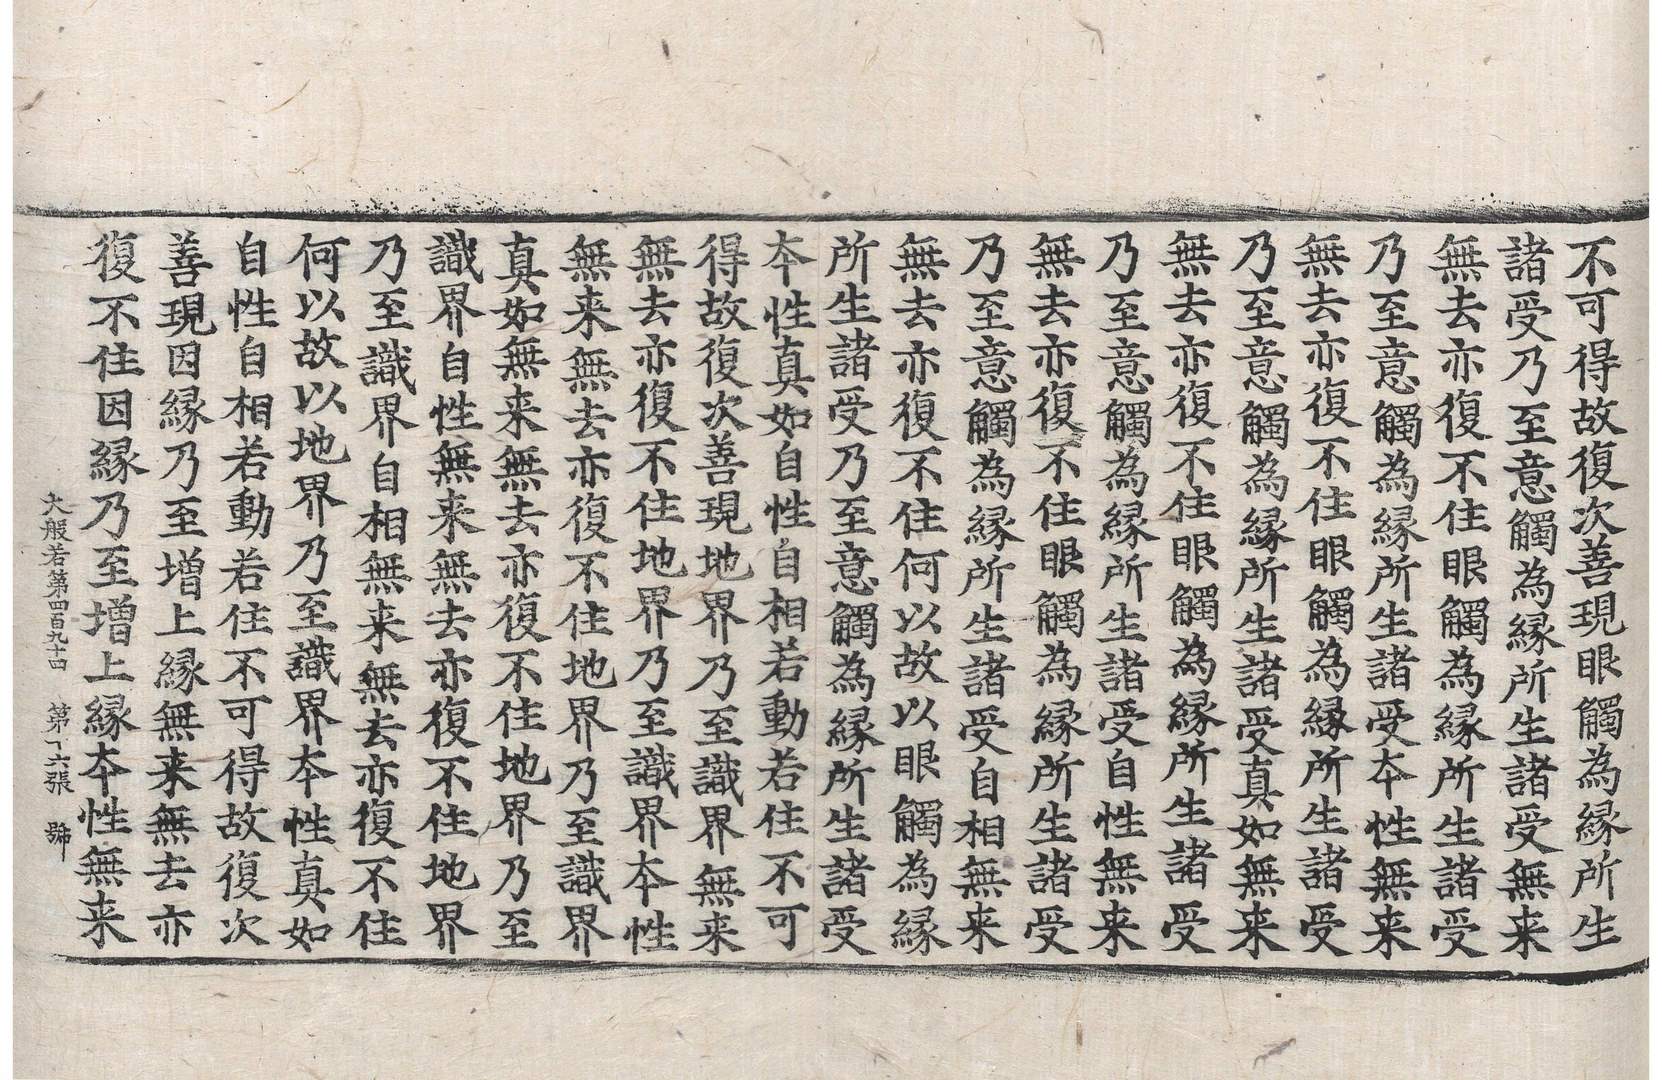 不可得故復次善現眼觸為緣所生
諸受乃至意觸為緣所生諸受無来
無去亦復不住眼觸為緣所生諸受
乃至意觸為緣所生諸受夲性無来
無去亦復不住眼觸為緣所生諸受
乃至意觸為緣所生諸受真如無来
無去亦復不住眼觸為緣所生諸受
乃至意觸為緣所生諸受自性無来
無去亦復不住眼觸為緣所生諸受
乃至意觸為緣所生諸受自相無来
無去亦復不住何以故以眼觸為緣
所生諸受乃至意觸為緣所生諸受
夲性真如自性自相若動若住不可
得故復次善現地界乃至識界無来
無去亦復不住地界乃至識界夲性
無来無去亦復不住地界乃至識界
真如無来無去亦復不住地界乃至
識界自性無来無去亦復不住地界
乃至識界自相無来無去亦復不住
何以故以地界乃至識界夲性真如
自性自相若動若住不可得故復次
善現因緣乃至增上緣無来無去亦
復不住因緣乃至增上緣夲性無来
大般若第四百九十四 第十六張 號